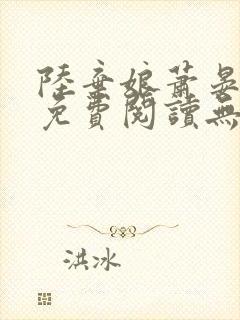 陸棄娘蕭晏
免費閱讀無
洪冰